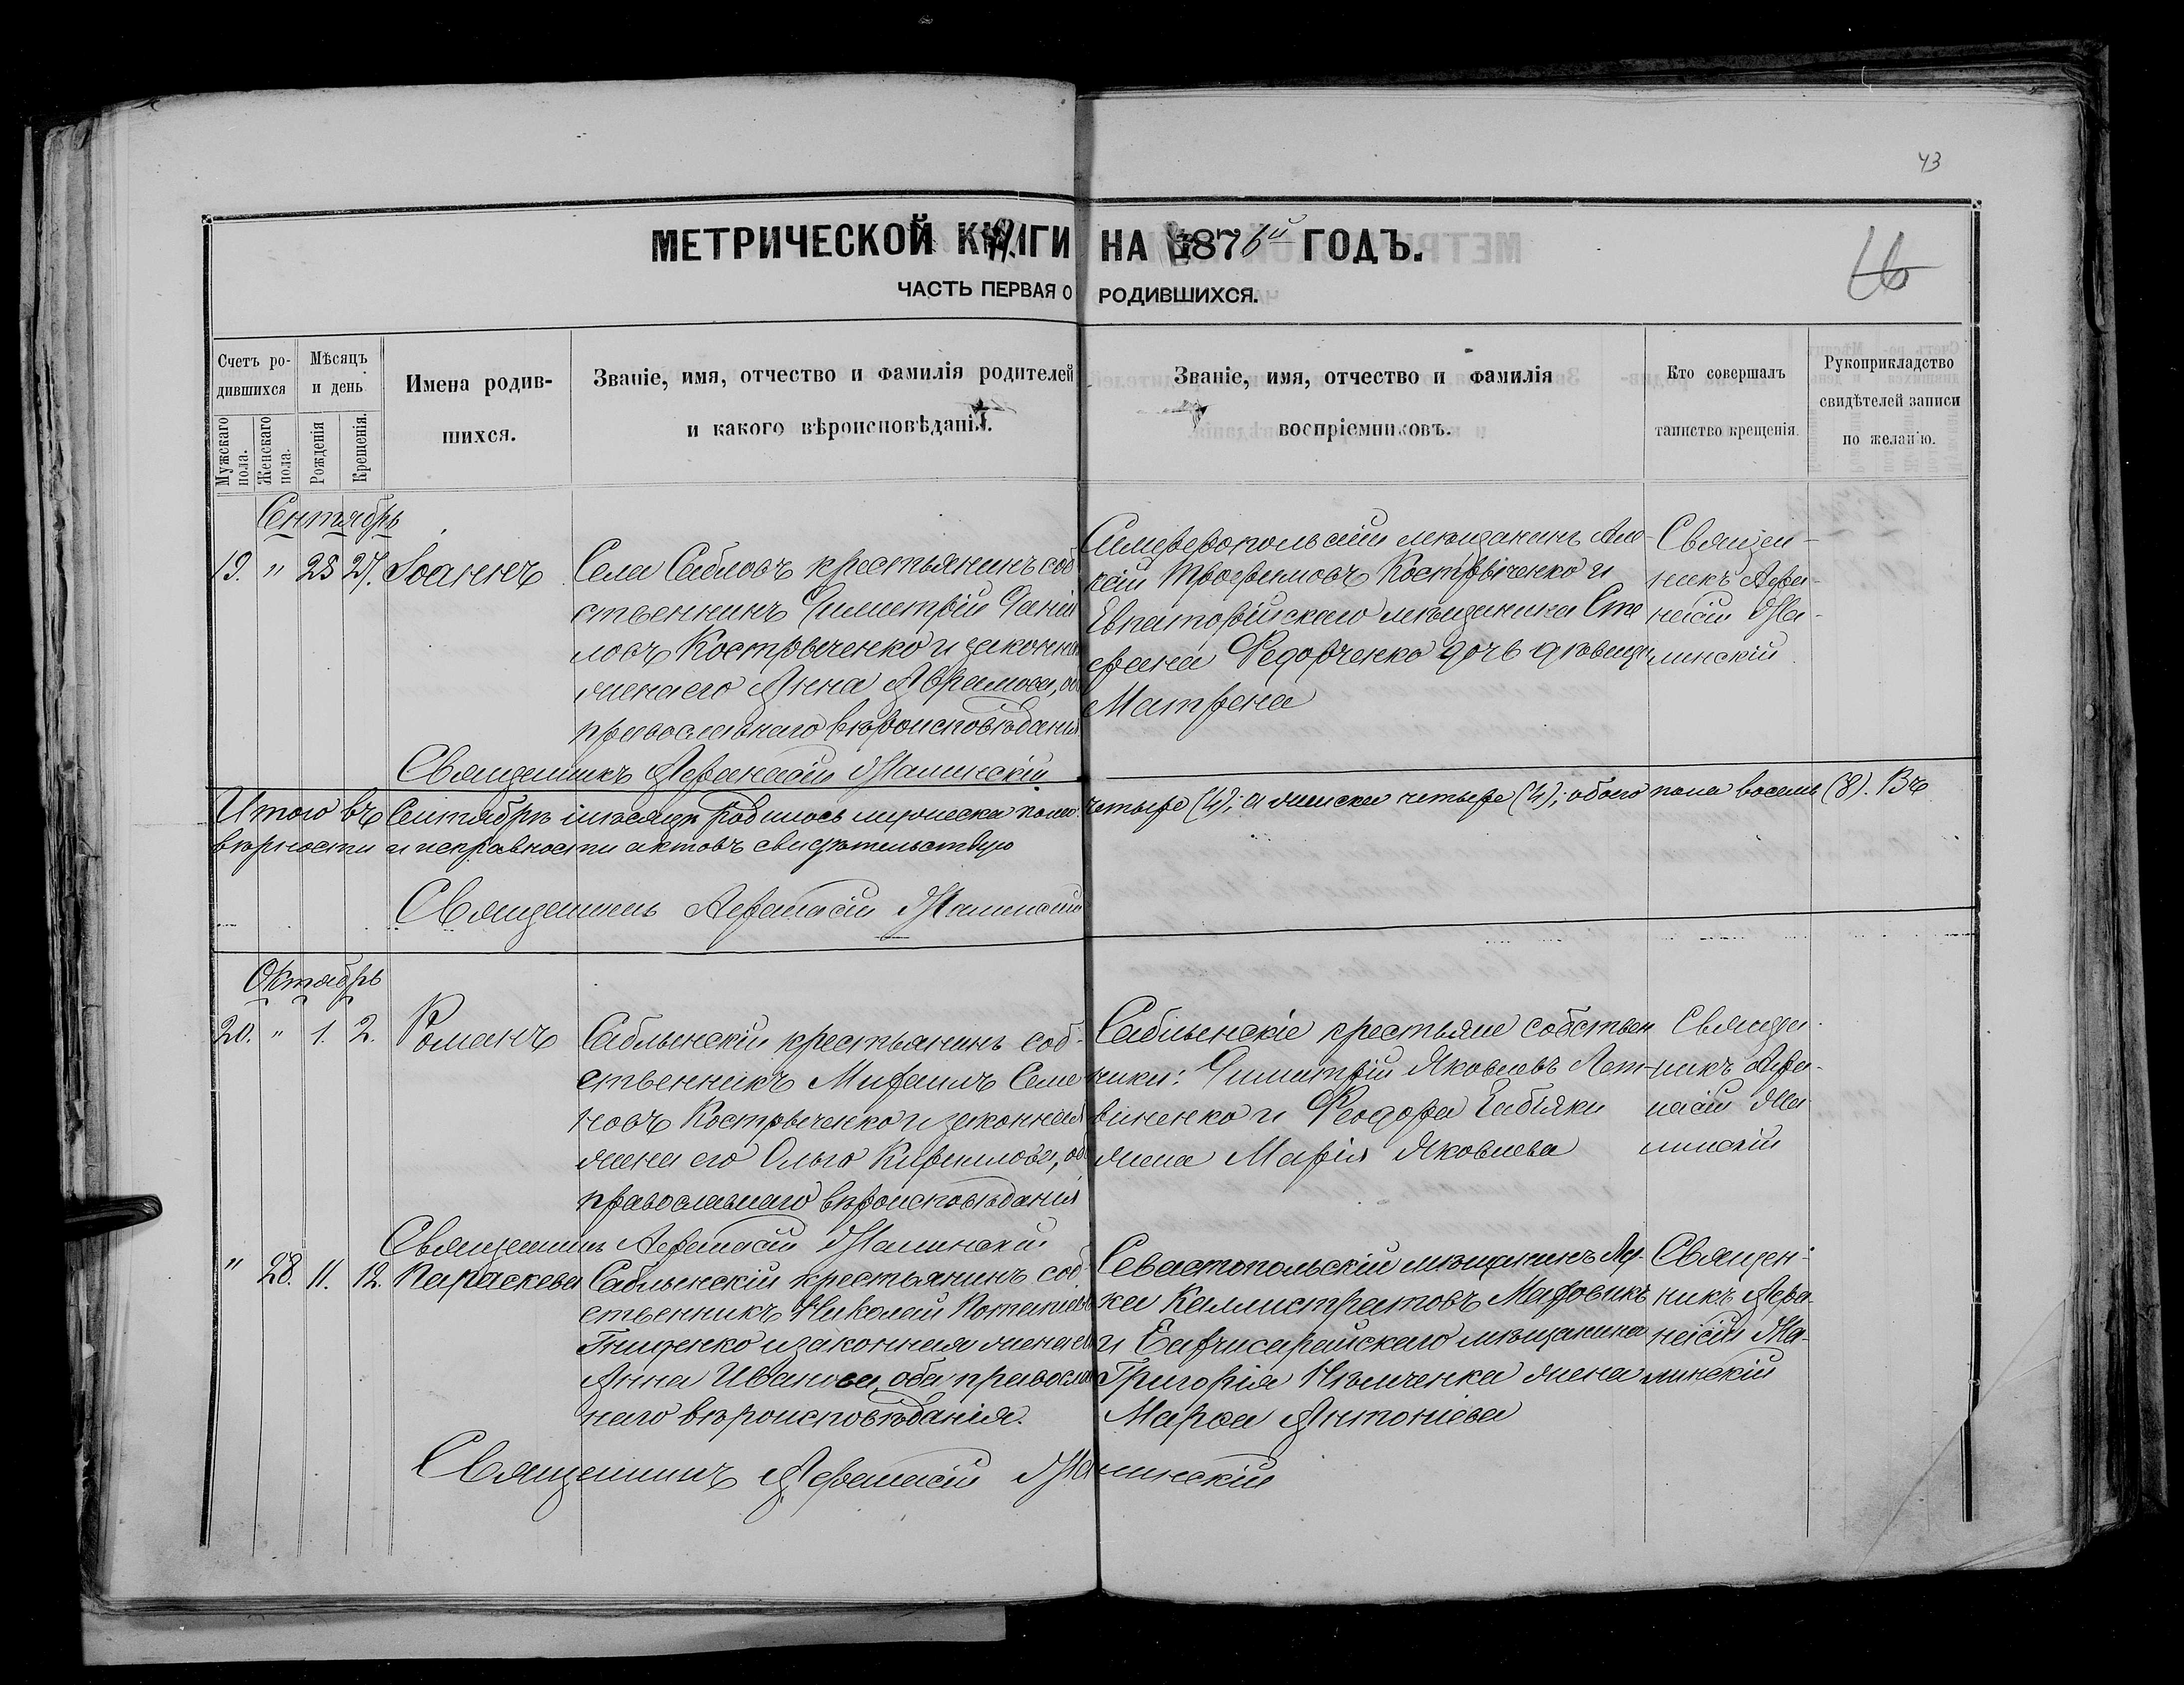 43
МЕТРИЧЕСКОЙ КНИГИ НА 1876й ГОДЪ.
ЧАСТЬ ПЕРВАЯ О РОДИВШИХСЯ.
Счетъ родившихся
Мужскаго пола.
Женскаго пола.
Мѣсяцъ и день
Рожденія
Крещенія.
Имена родив-
шихся.
Званіе, имя, отчество и фамилія родителей
и какого вѣроисповѣданія.
Званіе, имя, отчество и фамилія
воспріемниковъ.
Кто совершалъ
таинство крещенія.
Рукоприкладство
свидѣтелей записи
по желанію.
Сентябрь
19. " 23 27. Іоаннъ
Села Сабловъ крестьянинъ соб
ственникъ Димитрій Даніи
ловъ Костръченко и законная
жена его Анна Абрамова, об
православнаго вѣроисповѣданія
Симферопольскій мѣщанинъ Але-
ксій Трофимовъ Костръченко и
Евпаторійскаго мѣщанина Сте
фана Федорченко дочь дѣвица
Матрена
Священ-
никъ Афа-
насій Ма-
линскій
Священникъ Афанасій Малинскій
Итого въ Сентябрѣ мѣсяцѣ родилось мужеска пола четыре (4); а женска четыре (4); обоего пола восемь (8). Въ
вѣрности и исправности актовъ свидѣтельствую
Священникъ Афанасій Малинскій
Октябрь
20. " 1. 2. Романъ
Саблынскій крестьянинъ соб-
ственникъ Михаилъ Семе
новъ Костръченко и законная
жена его Ольга Кирилова, об
православнаго вѣроисповѣданія
Саблынскіе крестьяне собствен
ники: Димитрій Яковлевъ Лет-
виненко и Феодора Бабіяки
жена Марія Яковлева
Священ-
никъ Афа-
насій Ма
линскій
Священникъ Афанасій Малинскій
" 28. 11. 12. Параскева
Саблынскій крестьянинъ соб-
ственникъ Николай Потапіевъ
Гнищенко и законная жена его
Анна Иванова, оба правосла
наго вѣроисповѣданія.
Севастопольскій мѣщанинъ Лу-
ка Каллистратовъ
и Бахчисарайскаго мѣщанина
Григорія Нѣмченка жена
Марфа Антоніева
Священ-
никъ Афа-
насій Ма-
линскій
Священникъ Афанасій Малинскій